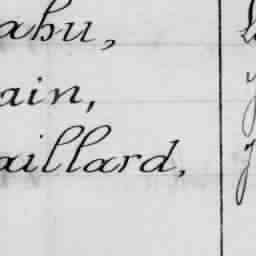 ahu,
ain,
aillard,